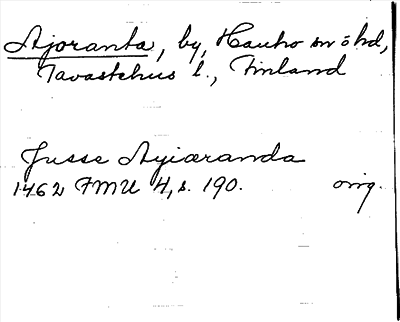 Ajoranta, by, Hauho sn o hd,
Tavastehus l., Finland
Jusse Ayiaranda
1462 FMU 4, s. 190. orig.